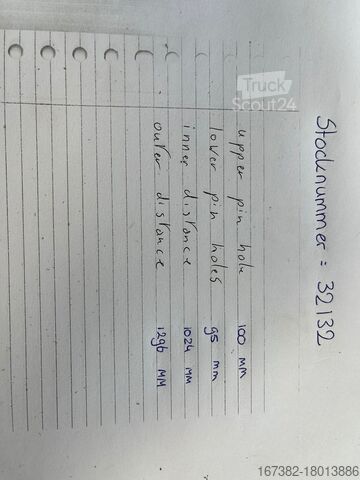 Stocknummer = 32132
upper pin hole 100 mm
lower pin holes 95 mm
inner distance 1024 MM
outer distance 1296 MM
Truck
Scout24
167382-18013886